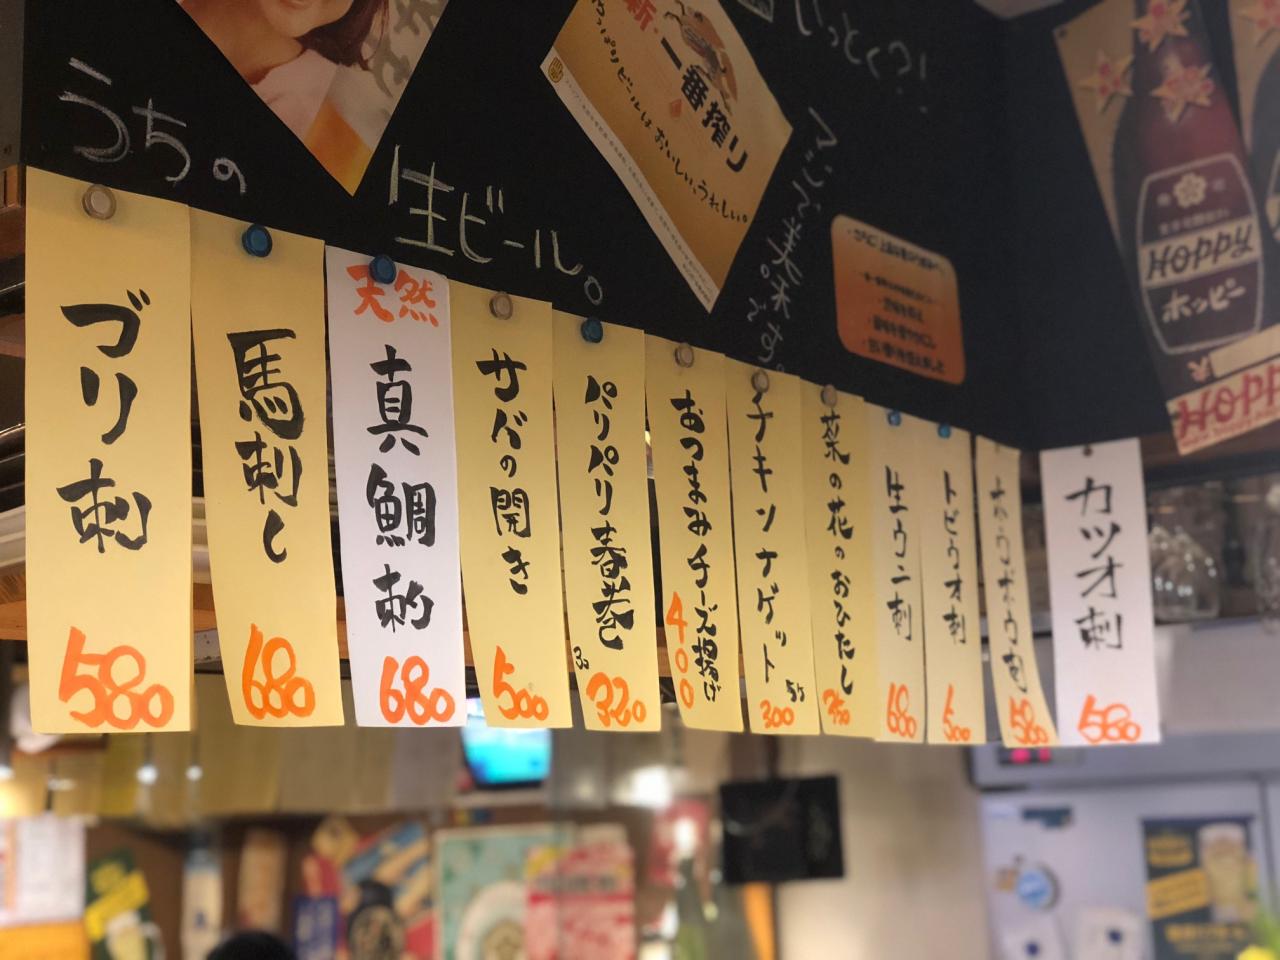 うちの
生ビール。
新・一番搾り
やっぱりビールはおいしい、うれしい。
HOPPY
ホッピー
HOPP
ブリ刺
580
馬刺し
680
天然
真鯛刺
680
サバの開き
500
パリパリ春巻き
320
おつまみチーズ揚げ
400
チキンナゲット
300
菜の花のおひたし
350
生ウニ刺
680
トビウオ刺
500
580
カツオ刺
580